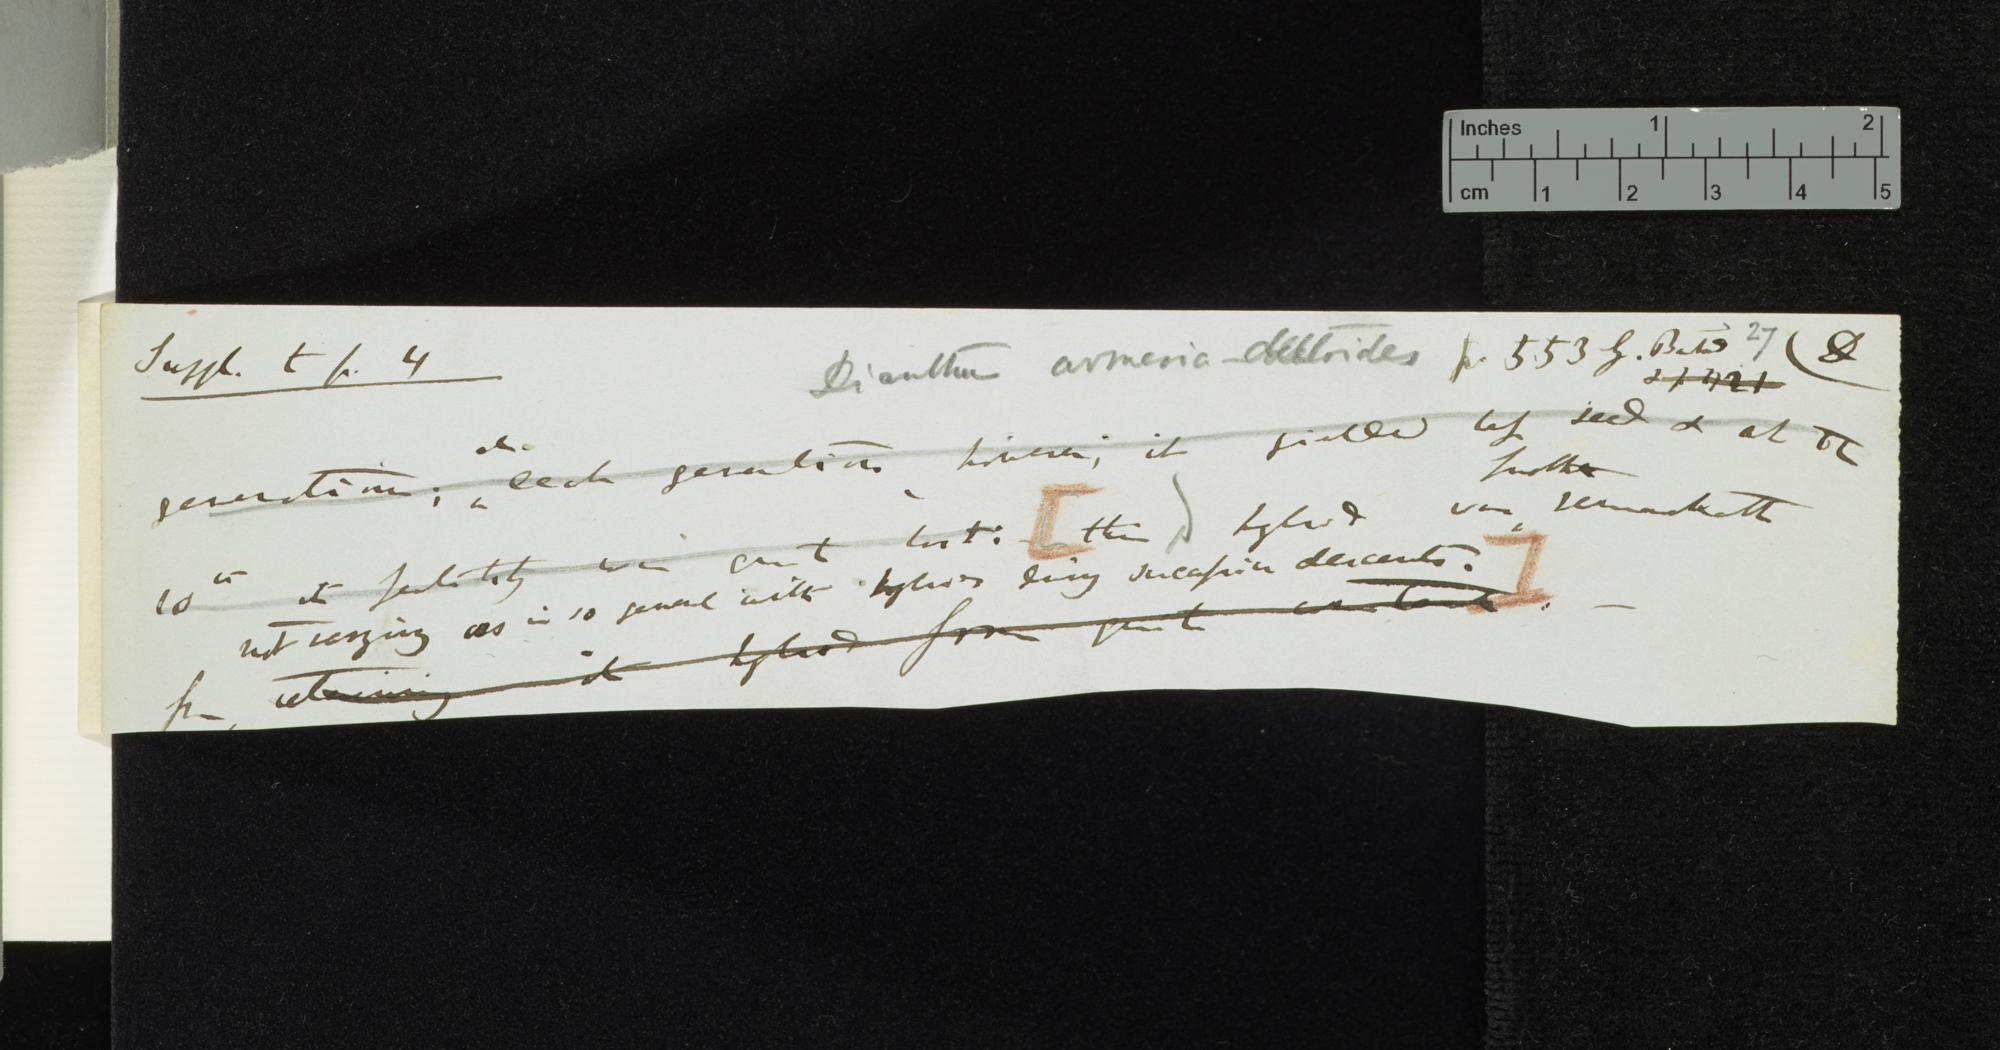 Inches 1 2
cm 1 2 3 4 5
Suppl. to p. 4 Dianthus armeria-deltoides p. 553 G. 27
generation; each generation, however, it yielded less seed & at the
10th its fertility was quite lost: [this hybrid was, remarkable
not varying as is so general with hybrids during successive descents.]
for retaining its hybrid form quite constant